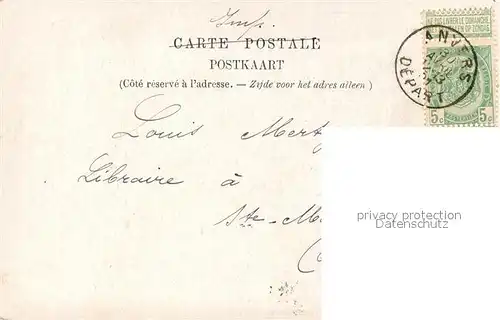 Imp.
CARTE POSTALE
POSTKAART
(Côté réservé à l'adresse. — Zijde voor het adres alleen)
NE PAS LIVRER LE DIMANCHE
ANVERS
DÉPART
5c 5c
Louis Mertz
Libraire à
Ste-M
privacy protection
Datenschutz